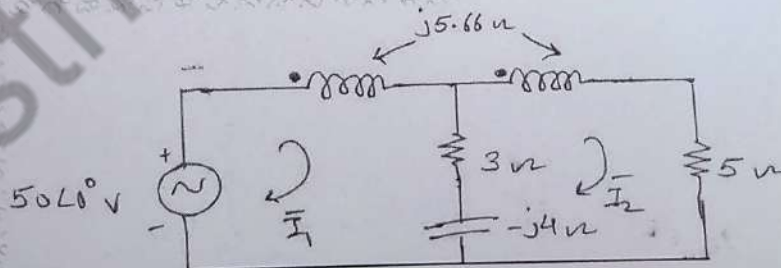 j5.66 Ω
+
50∠0° V
-
I̅₁
3 Ω
-j4 Ω
I̅₂
5 Ω